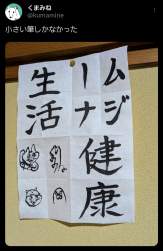 くまみね
@kumamine
小さい筆しかなかった
ムジ
ーナ
健康
生活